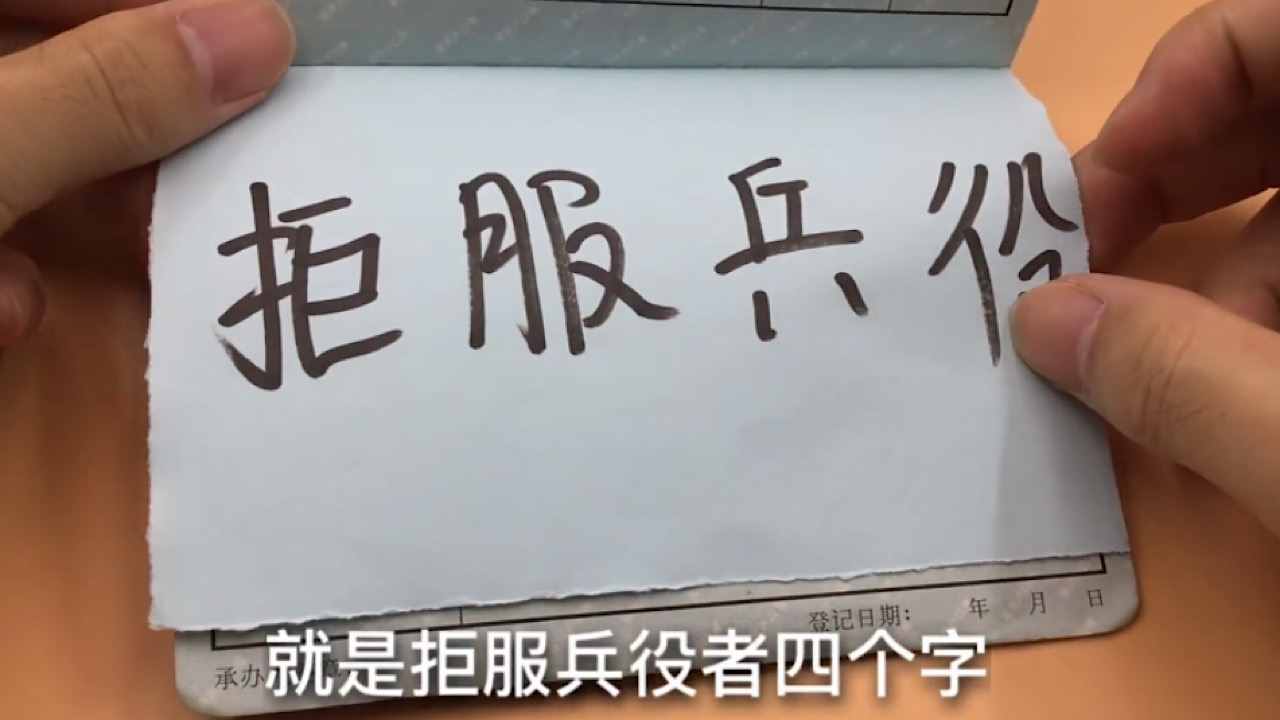 拒服兵役
登记日期： 年 月 日
承办
就是拒服兵役者四个字